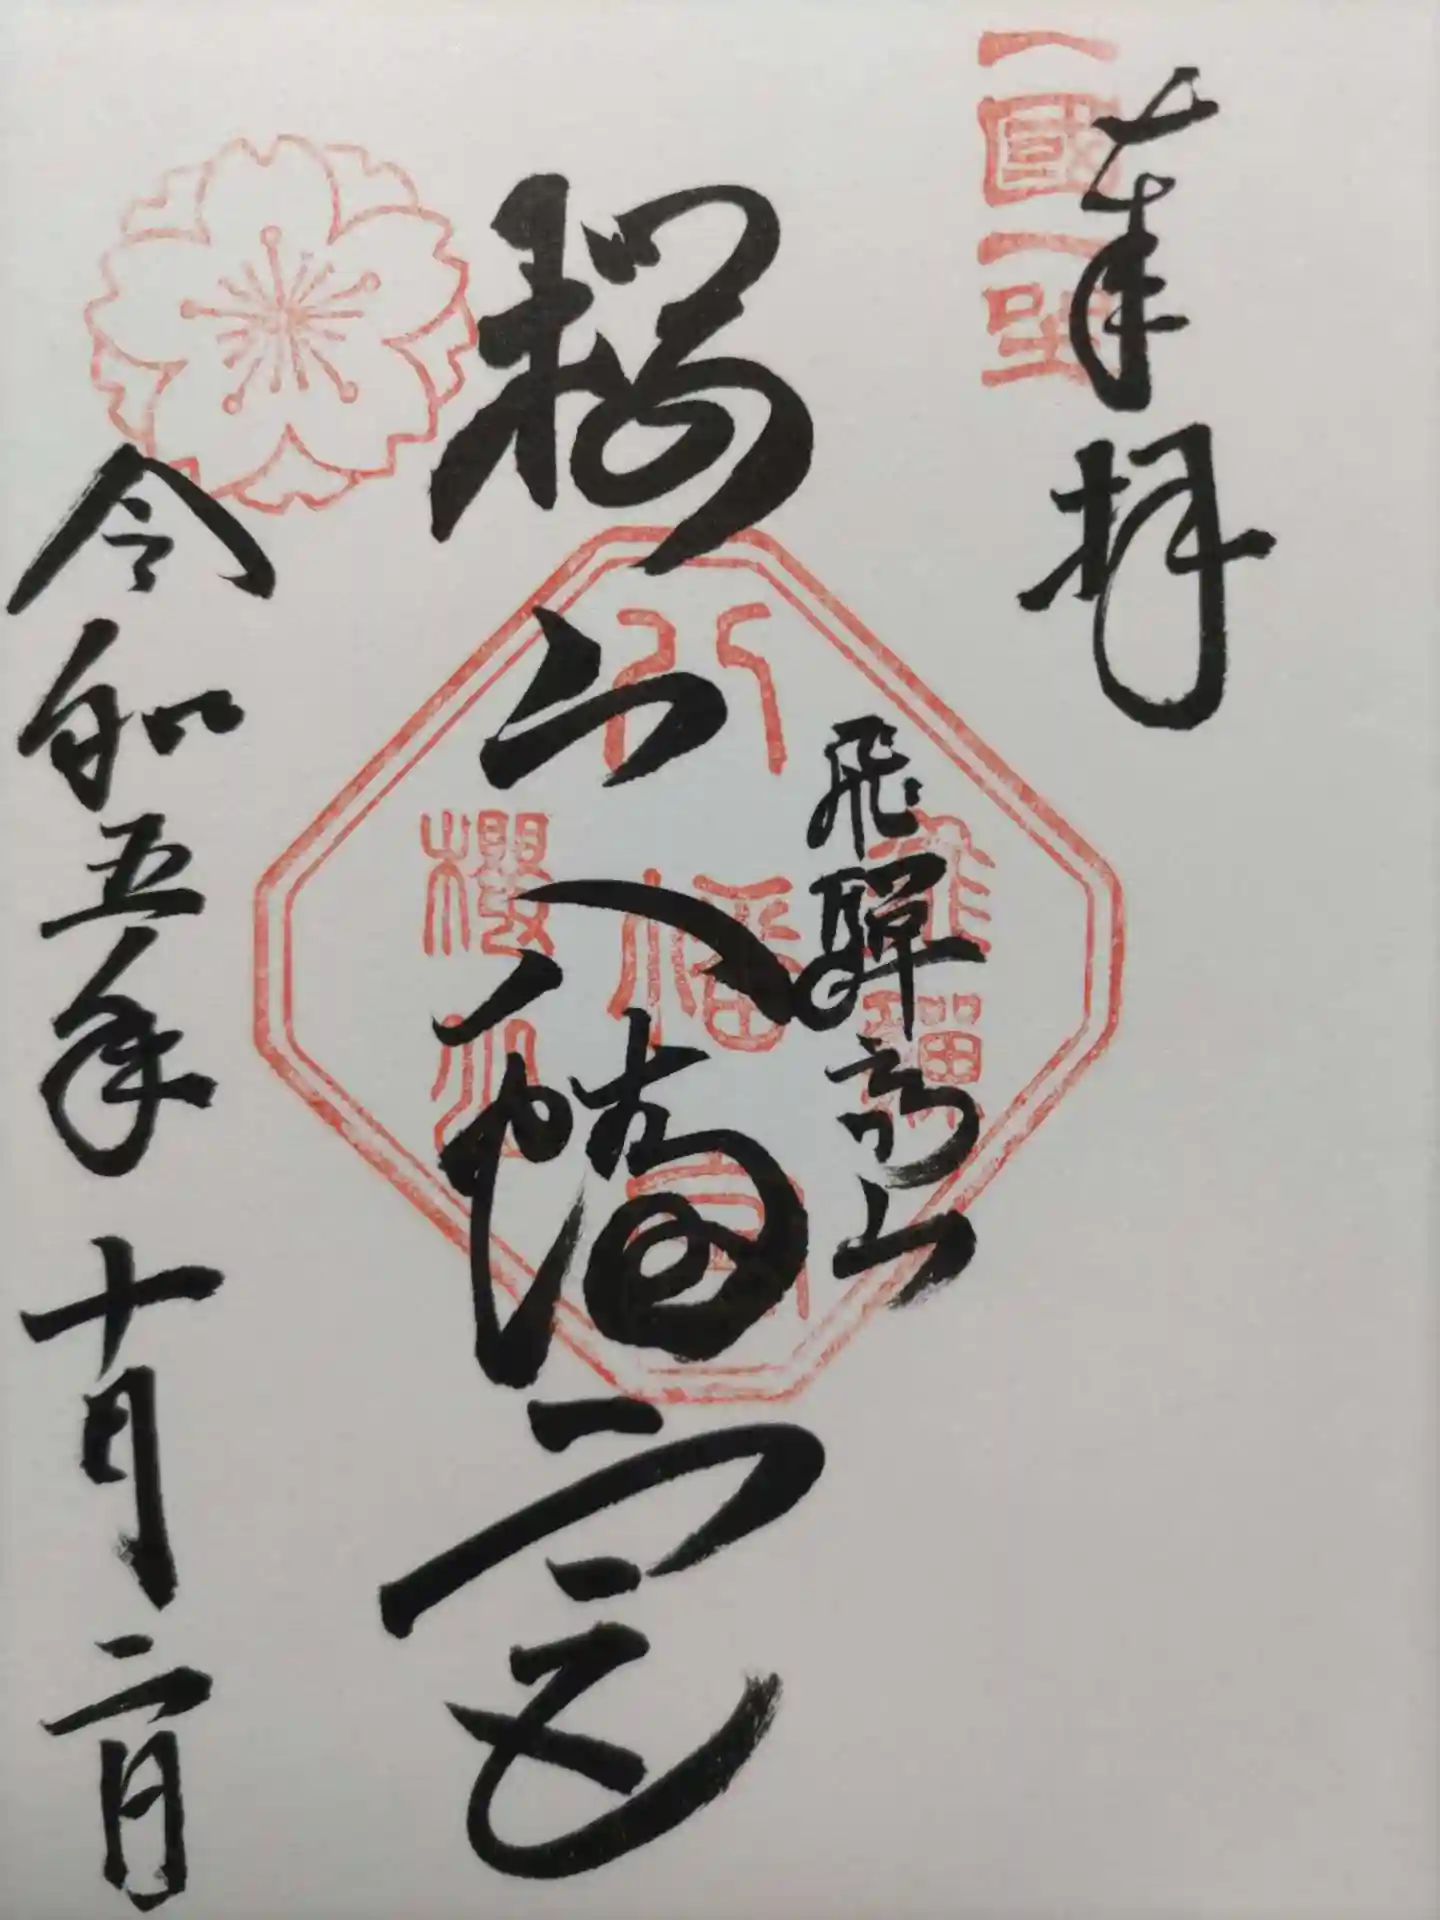 奉拝
一國一社
飛騨高山
桜山八幡宮
飛騨
八幡宮
櫻山
令和五年十月二日